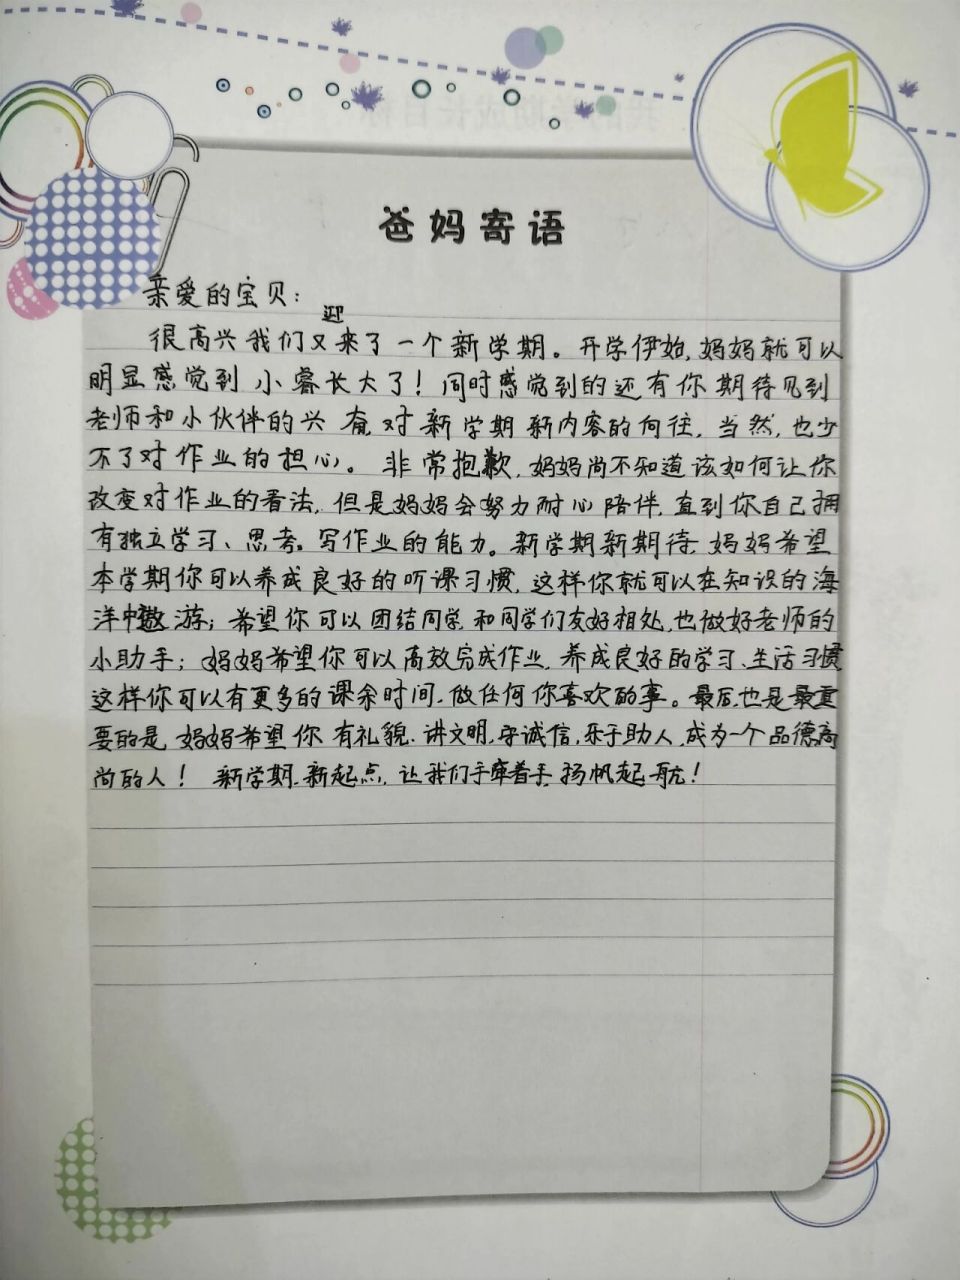 爸妈寄语
亲爱的宝贝：
很高兴我们又迎来了一个新学期。开学伊始,妈妈就可以
明显感觉到小睿长大了！同时感觉到的还有你期待见到
老师和小伙伴的兴奋,对新学期新内容的向往,当然,也少
不了对作业的担心。非常抱歉,妈妈尚不知道该如何让你
改变对作业的看法,但是妈妈会努力耐心陪伴,直到你自己拥
有独立学习、思考、写作业的能力。新学期新期待,妈妈希望
本学期你可以养成良好的听课习惯,这样你就可以在知识的海
洋中遨游；希望你可以团结同学,和同学们友好相处,也做好老师的
小助手；妈妈希望你可以高效完成作业,养成良好的学习、生活习惯
这样你可以有更多的课余时间,做任何你喜欢的事。最后,也是最重
要的是,妈妈希望你有礼貌、讲文明,守诚信,乐于助人,成为一个品德高
尚的人！新学期,新起点,让我们手牵着手,扬帆起航！